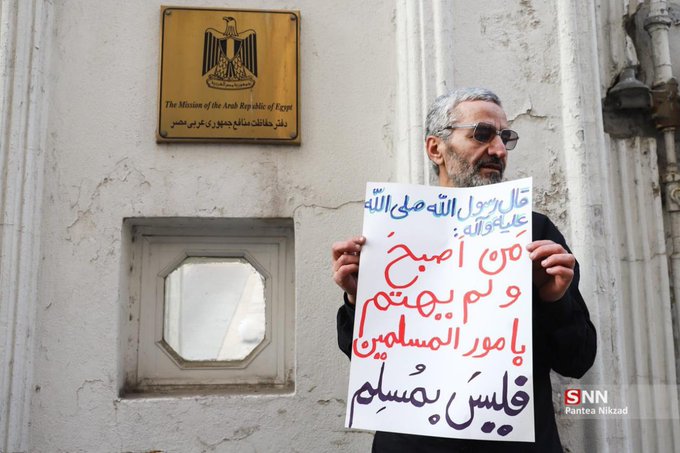 The Mission of the Arab Republic of Egypt
دفتر حفاظت منافع جمهوری عربی مصر
قال رسول الله صلی الله
علیه وآله:
مَن أصبحَ
ولم یهتم
بامور المسلمین
فلیسَ بمُسلِم
SNN
Pantea Nikzad